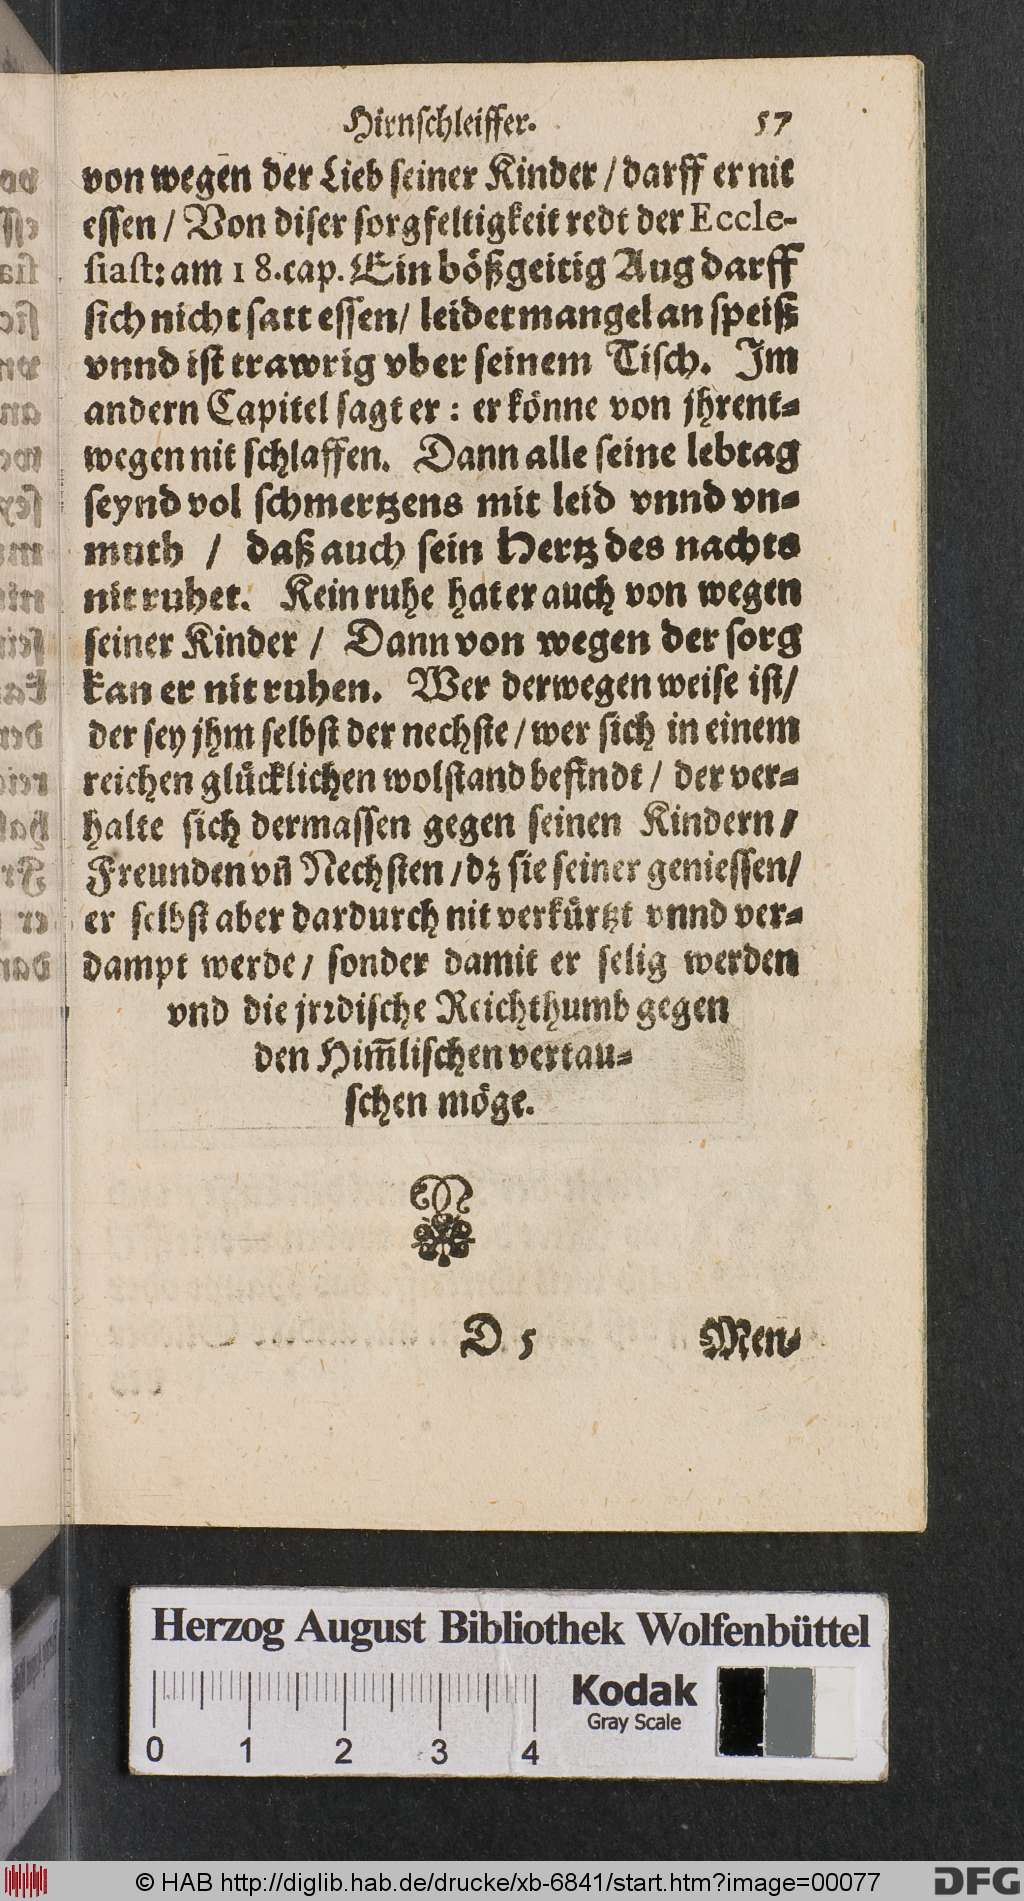 Hirnschleiffer. 57
von wegen der Lieb seiner Kinder / darff er nit
essen / Von diser sorgfeltigkeit redt der Eccle-
siast: am 18. cap. Ein bößgeitig Aug darff
sich nicht satt essen / leidet mangel an speiß
vnnd ist trawrig vber seinem Tisch. Im
andern Capitel sagt er : er könne von jhrent-
wegen nit schlaffen. Dann alle seine lebtag
seynd vol schmertzens mit leid vnnd vn-
muth / daß auch sein Hertz des nachts
nit ruhet. Kein ruhe hat er auch von wegen
seiner Kinder / Dann von wegen der sorg
kan er nit ruhen. Wer derwegen weise ist /
der sey jhm selbst der nechste / wer sich in einem
reichen glücklichen wolstand befindt / der ver-
halte sich dermassen gegen seinen Kindern /
Freunden vn̄ Nechsten / dz sie seiner geniessen /
er selbst aber dardurch nit verkürtzt vnnd ver-
dampt werde / sonder damit er selig werden
vnd die jrrdische Reichthumb gegen
den Him̄lischen vertau-
schen möge.
D 5 Men-
Herzog August Bibliothek Wolfenbüttel
Kodak
Gray Scale
0 1 2 3 4
© HAB http://diglib.hab.de/drucke/xb-6841/start.htm?image=00077
DFG